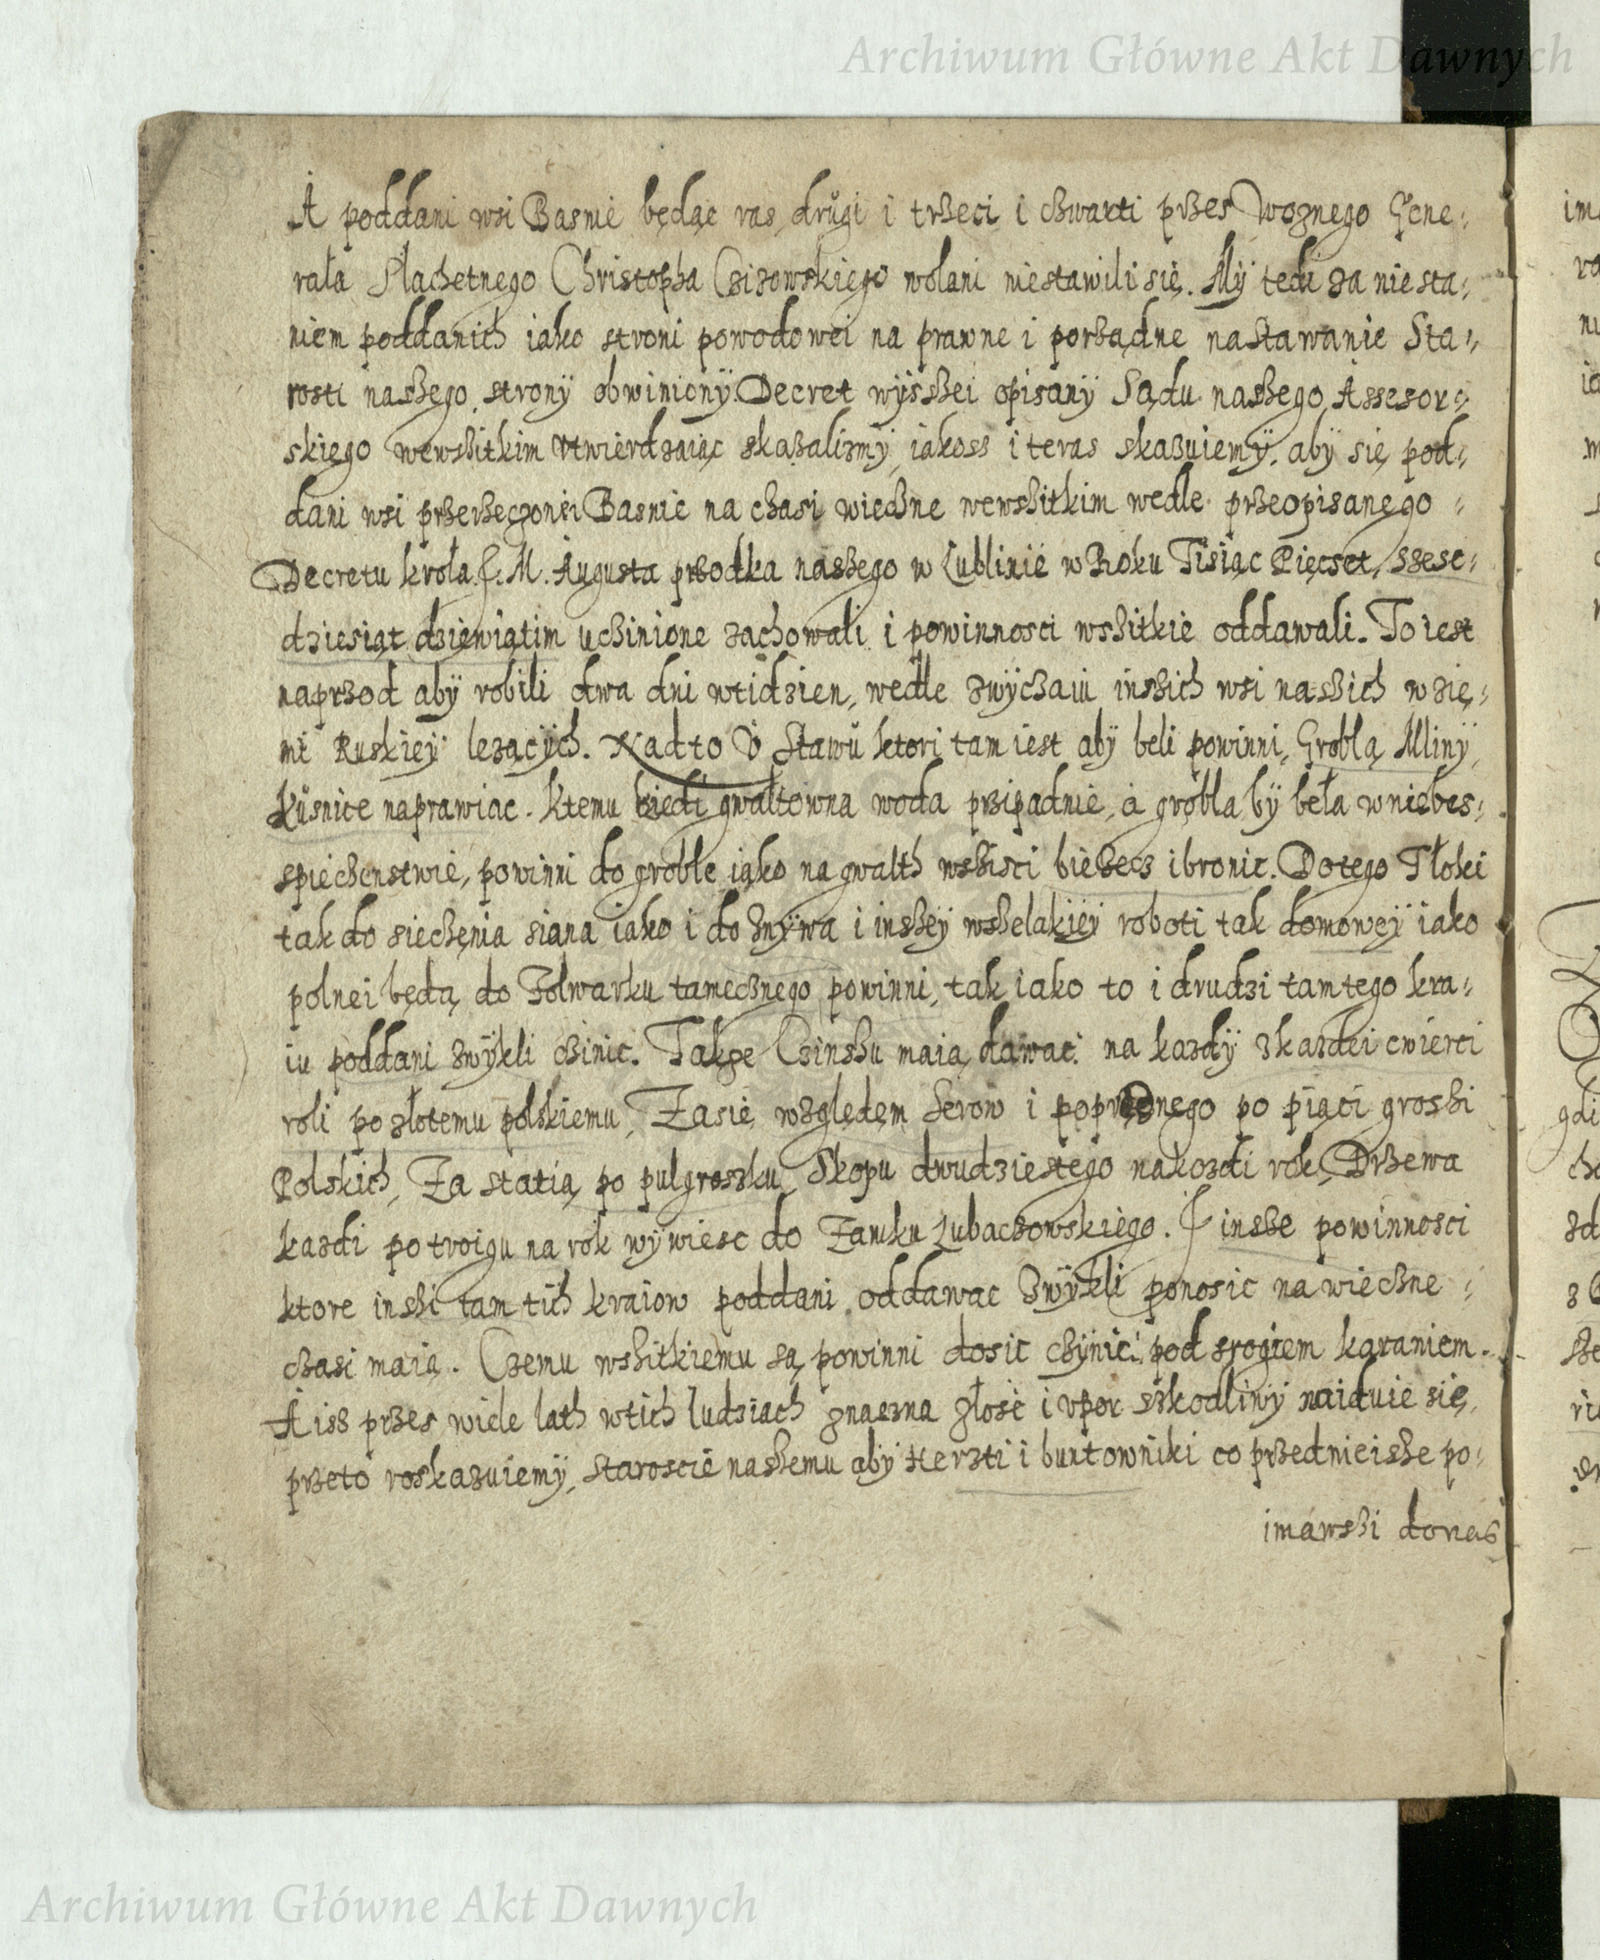 Archiwum Główne Akt Dawnych
A poddani wsi Basnie będąc ras, drůgi i trzeci i czwarti przes Woznego Gene-
rała Slachetnego Christopha Czizowskiego wołani niestawili się. My tedi za niesta-
niem poddanich iako stroni powodowei na prawne i porządne nastawanie Sta-
rosti naszego, strony obwiniony Decret wysszei opisany Sądu naszego Assesor-
skiego wewszitkim utwierdzaiąc skazalismy, iakoss i teras skazuiemy, aby się pod-
dani wsi przerzeczonei Basnie na czasi wieczne wewszitkim wedle przeopisanego -
Decretu krola J. M. Augusta przodka naszego w Lublinie w Roku Tisiąc Pięcset, szesc-
dziesiąt dziewiątim uczinione zachowali i powinnosci wszitkie oddawali. To iest
naprzod aby robili dwa dni wtidzien, wedle zwyczaiu inszich wsi naszich w zie-
mi Ruskiey lezących. Nadto U Stawů ktori tam iest aby beli powinni, Groblą Mliny,
Kůsnice naprawiac. Ktemu kiedi gwałtowna woda przipadnie, a grobla by beła wniebes-
spieczenstwie, powinni do groble iako na gwalth wszisci biezecz i bronic. Dotego Tłoki
tak do sieczenia siana iako i do znywa i inszey wszelakiey roboti tak domowey iako
polnei będą do Folwarku tamecznego powinni, tak iako to i drudzi tamtego kra-
iu poddani zwykli czinic. Takze Czinszu maią dawac na kazdy z kazdei cwierci
roli po złotemu polskiemu, Zasie względem Serow i poprężnego po piąci groszi
Polskich, Za statią po pulgroszku, Skopu dwudziestego nakozdi rok, Drzewa
kazdi po troigu na rok wywiesc do Zamku Lubaczowskiego. I insze powinnosci
ktore inszi tam tich kraiow poddani oddawac zwykli ponosic na wieczne -
czasi maią. Czemu wszitkiemu są powinni dosic czynic pod srogiem karaniem.
A isz przes wiele lath wtich ludziach znaczna złosc i upor szkodliwy naiduie się,
przeto roskazuiemy, staroscie naszemu aby Herzti i buntowniki co przednieisze po-
imawszi donas
Archiwum Główne Akt Dawnych